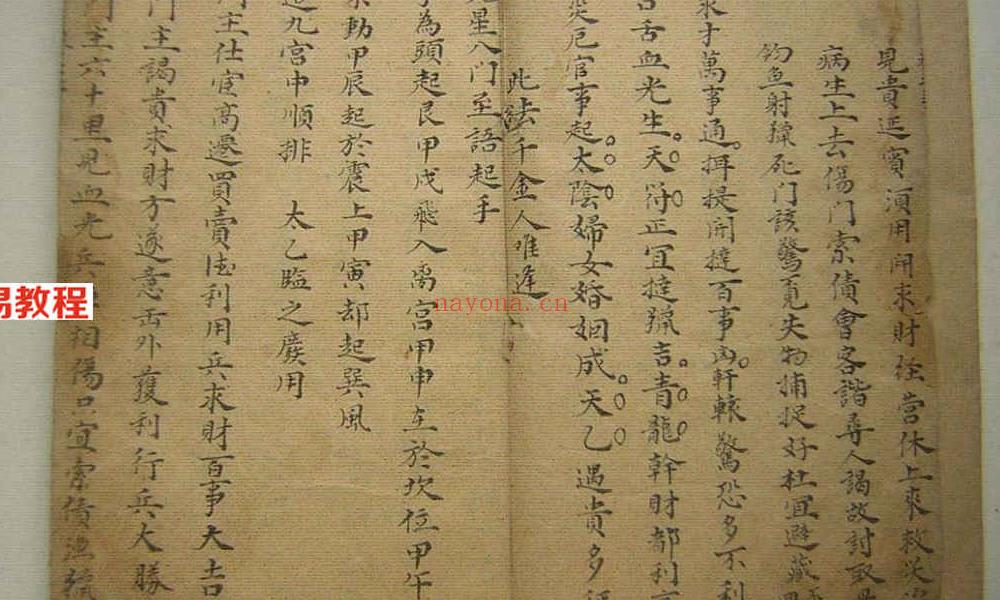 見貴延賓酒用開求財強營休上來救災
病生上去傷門索債會客諧尋人謁故討取
釣魚射獵死門該驚覓失物捕捉好杜宜避藏
求才萬事通招提開撻百事凶軒轅驚恐多不利
口舌血光生天符正宜撻獵吉青龍幹財都利
災厄官事起太陰婦女婚姻成天乙遇貴多
此法千金人唯逢
九星八門至語起手
為頭起艮甲戌飛入离宮甲申在於坎位甲午
動甲辰起於震上甲寅却起巽風
九宮中順排 太乙臨之廢用
門主仕宦高遷買賣利用兵求財百事大吉
門主謁貴求財方遂意西外獲利行兵大勝
門主六十里見血光兵相傷只宜索債漁獵
易教程
nayona.cn